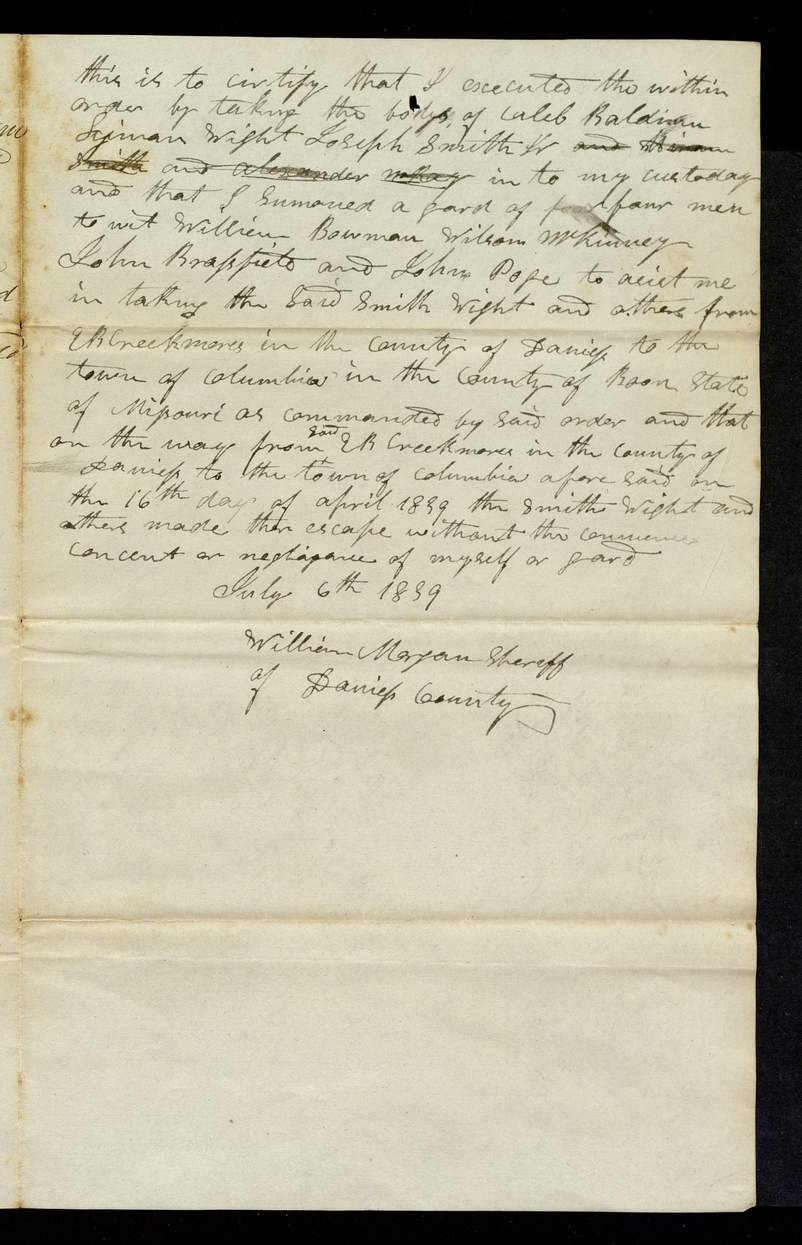 this is to cirtify that I executed the within
order by taking the bodys of Caleb Baldwin
Lyman Wight Joseph Smith Jr and Hiram
Smith and alexander mcRay in to my custoday
and that I Sumoned a gard of four men
to wit William Bowman Wilson McKinney
John Brassfield and John Pope to acist me
in taking the Said Smith Wight and others from
E B Creekmores in the County of Daviess to the
town of Columbia in the County of Boon State
of Missouri as commanded by Said order and that
on the way from said E B Creekmores in the County of
Daviess to the town of Columbia afore Said on
the 16th day of april 1839 the Smith Wight and
others made ther escape without the
concent or negligance of myself or gard
July 6th 1839
William Morgan Sheriff
of Daviess County